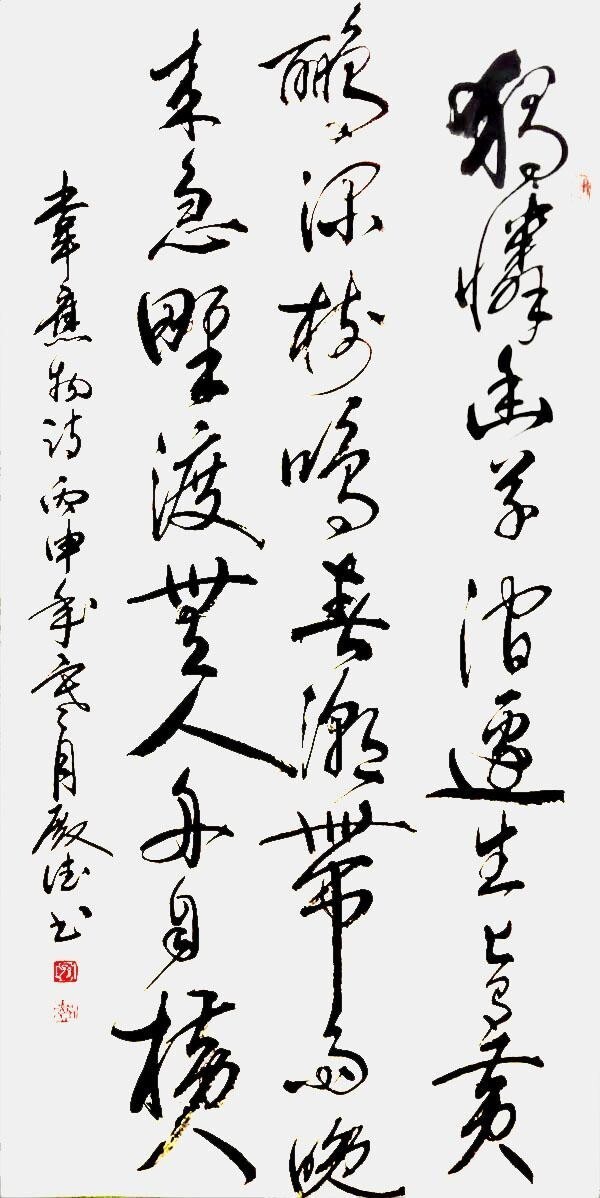 獨憐幽草澗邊生上有黄
鸝深樹鳴春潮帶雨晚
来急野渡無人舟自横
韋應物诗丙申年月书